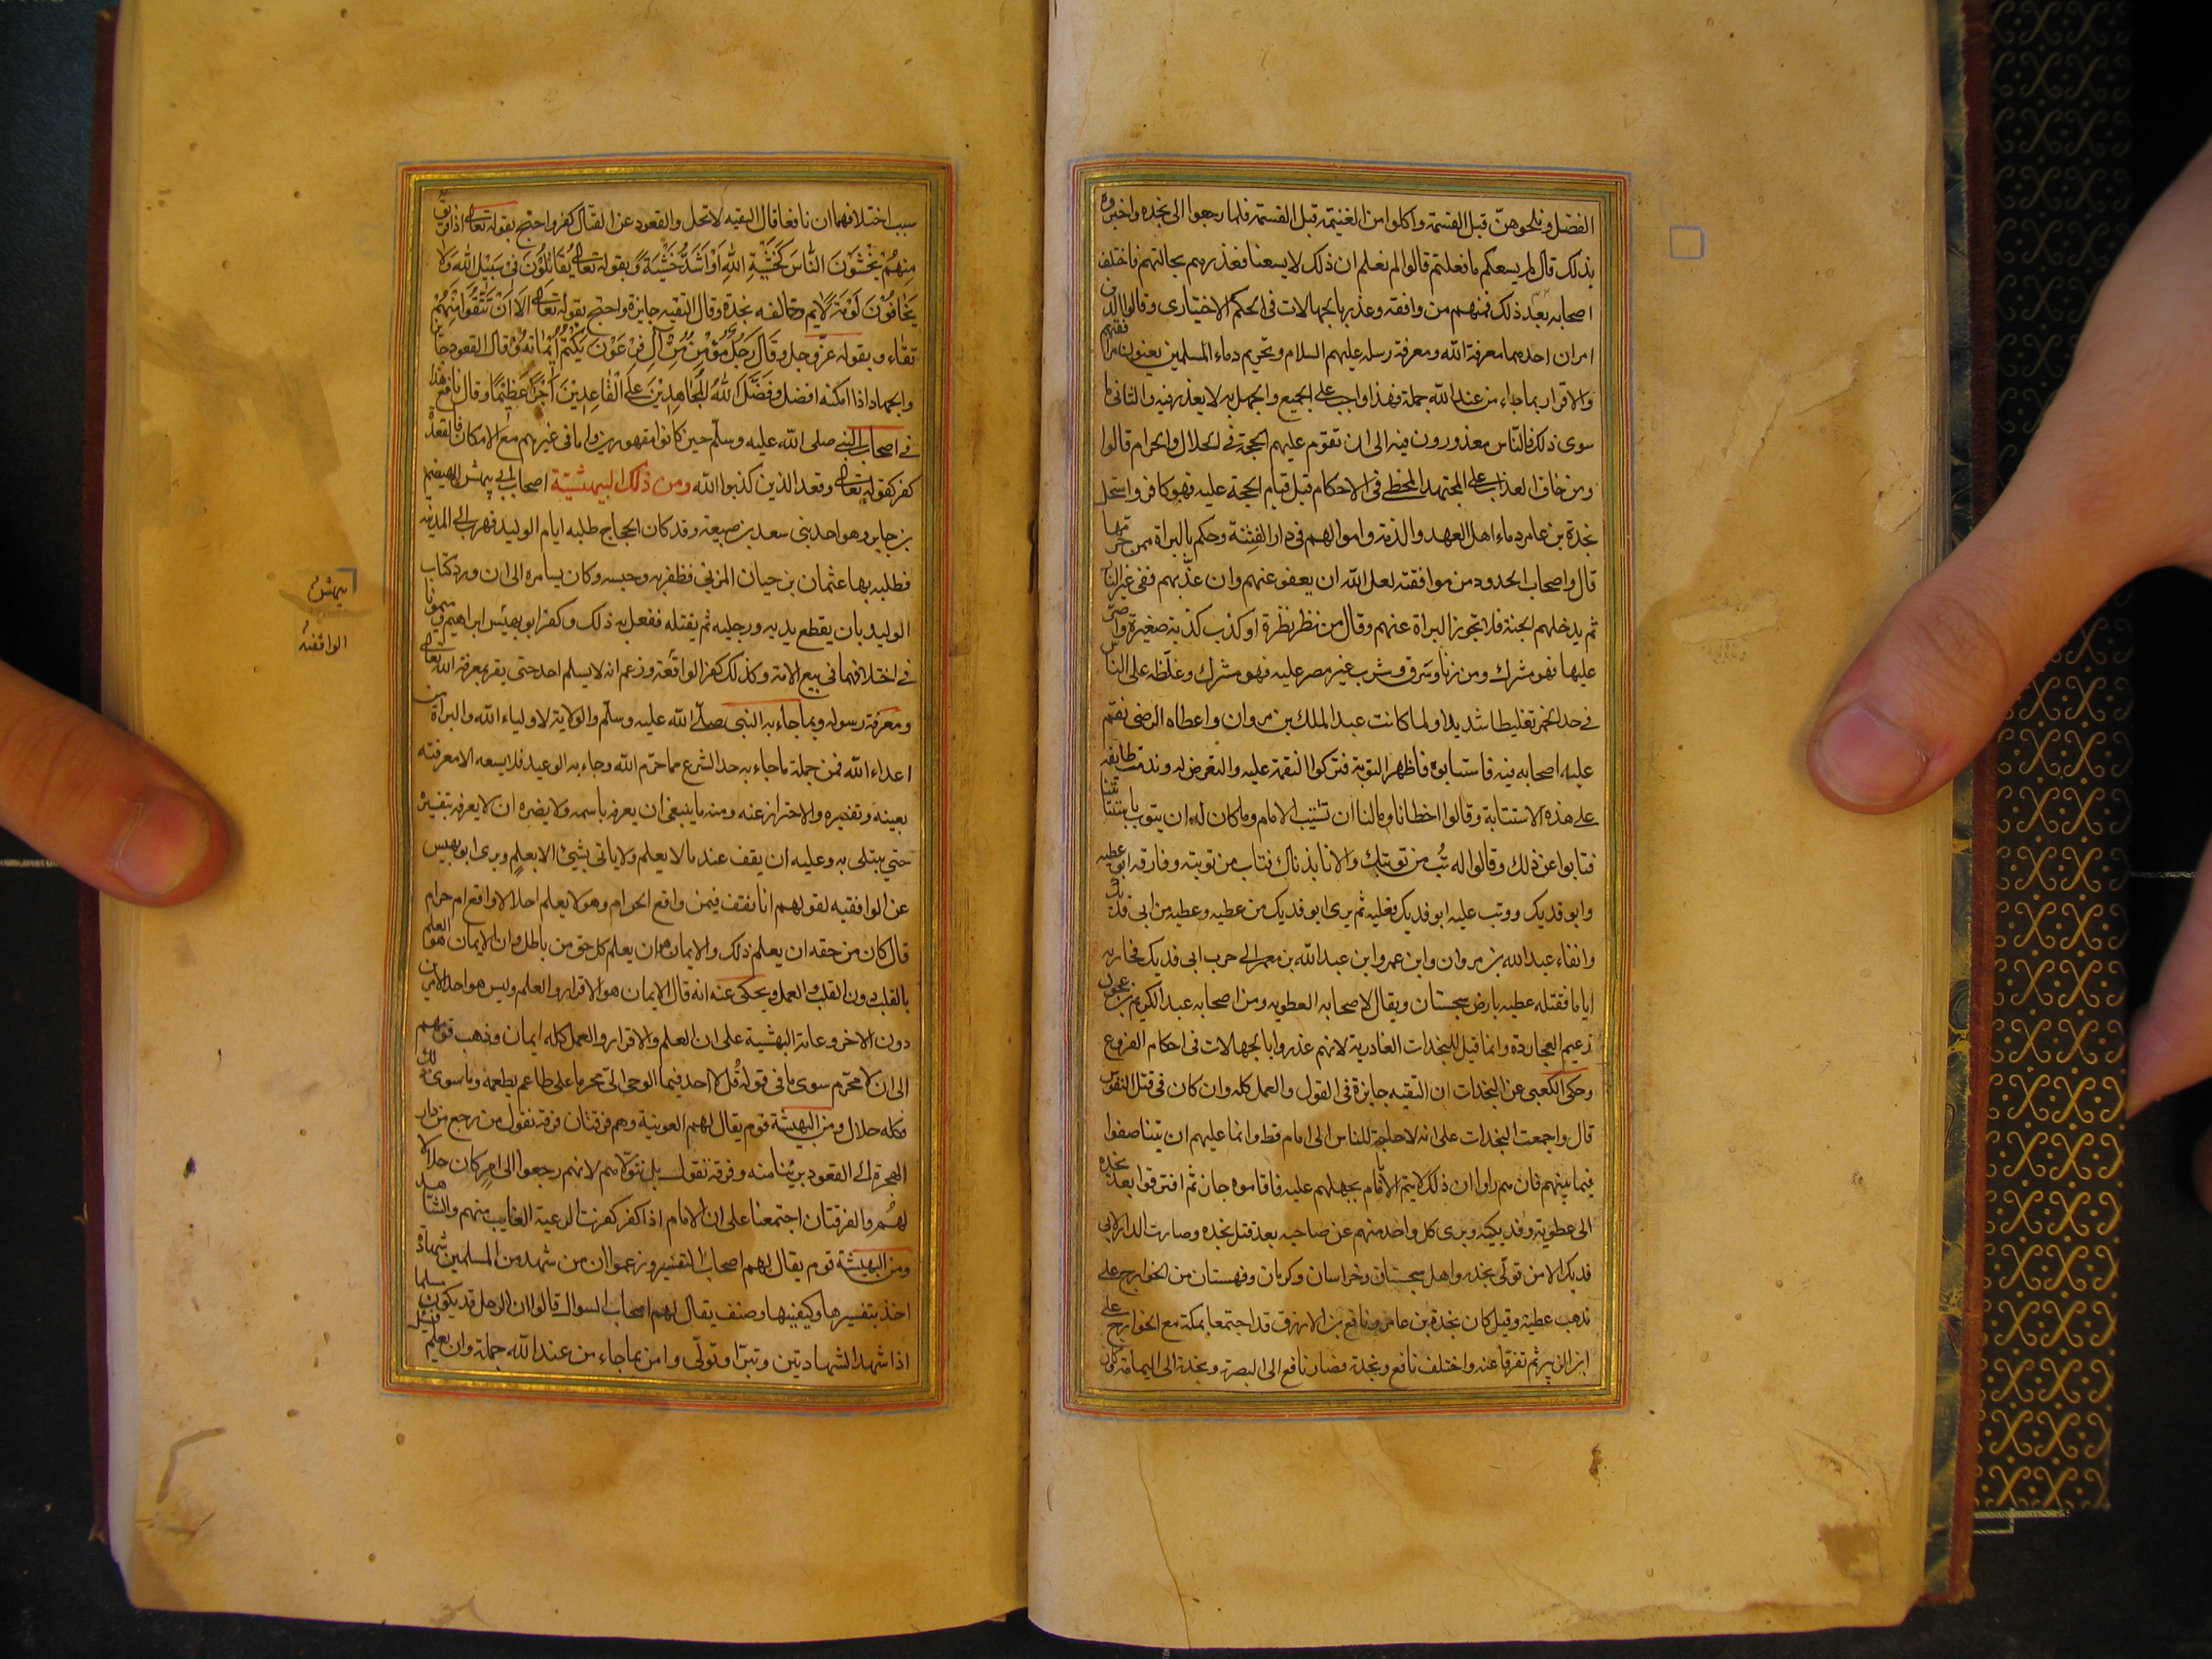 الفضل ونلحوهن قبل القسمة واكلوا من الغنيمة قبل القسمة فلما رجعوا الى نجده واخبروه
بذلك قال لم يسعكم ما فعلتم قالوا لم نعلم ان ذلك لا يسعنا فعذرهم بجهالتهم فاختلف
اصحابه بعد ذلك فمنهم من وافقه وعذر بالجهالات فى الحكم الاختيارى وقالوا الدين
امران احدهما معرفة الله ومعرفة رسله عليهم السلام وتحريم دماء المسلمين يعنون موافقهم
والاقرار بما جاء من عند الله جملة فهذا واجب على الجميع والجهل به لا يعذر فيه والثانى ما
سوى ذلك فالناس معذورون فيه الى ان تقوم عليهم الحجة فى الحلال والحرام قالوا
ومن خاف العذاب على المجتهد المخطى فى الاحكام قبل قيام الحجة عليه فهو كافر واستحل
نجدة بن عامر دماء اهل العهد والذمة واموالهم فى دار الفتنة وحكم بالبراة ممن حرمها
قال واصحاب الحدود من موافقته لعل الله ان يعفو عنهم وان عذبهم ففى غير النار
ثم يدخلهم الجنة فلا تجوز البراة عنهم وقال من نظر نظرة او كذب كذبة صغيرة واصر
عليها فهو مشرك ومن زنا وسرق وشرب غير مصر عليه فهو مشرك وغلظ على الناس
فى حد الخمر تغليظا شديدا ولما كاتب عبد الملك بن مروان واعطاه الرضى نقم
عليه اصحابه فيه فاستتابوه فاظهر التوبة فتركوا النقمة عليه والتعرض له وندمت طايفة
على هذه الاستتابة وقالوا اخطانا وما لنا ان نستتيب الامام وما كان له ان يتوب باستتابتنا
فتابوا عن ذلك وقالوا له تب من توبتك والا نابذناك فتاب من توبته وفارقه ابو عطيه
وابو فديك ووثب عليه ابو فديك فقليه ثم برى ابو فديك من عطيه وعطيه من ابى فديك
وانفاء عبد الله بن مروان وابن عمرو ابن عبد الله بن معمر الى حرب ابى فديك فحاربه
اياما فقتله عطيه بارض سجستان ويقال لاصحابه العطويه ومن اصحابه عبد الكريم بن عجرد
زعيم العجاردة وانما قيل للنجدات العاذرية لانهم عذروا بالجهالات فى احكام الفروع
وحكى الكعبى عن النجدات ان التقيه جايزة فى القول والعمل كله وان كان فى قتل النفوس
قال واجمعت النجدات على انه لا حاجة للناس الى امام قط وانما عليهم ان يتناصفوا
فيما بينهم فان هم راوا ان ذلك لا يتم الا بامام بجهلهم عليه فاقاموه جاز ثم افترقوا بعد نجده
الى عطوية وفديكية وبرى كل واحد منهم عن صاحبه بعد قتل نجده وصارت الدار لابى
فديك الا من تولى نجده واهل سجستان وخراسان وكرمان وقهستان من الخوارج على
مذهب عطية وقيل كان نجدة بن عامر ونافع بن الازرق قد اجتمعا بمكة مع الخوارج على
ابن الزبير ثم تفرقا عنه واختلف نافع ونجدة فصار نافع الى البصرة ونجدة الى اليمامة وكان
سبب اختلافهما ان نافعا قال التقيه لا تحل والقعود عن القتال كفر واحتج بقوله تعالى اذا فريق
منهم يخشون الناس كخشية الله او اشد خشية وبقوله تعالى يقاتلون فى سبيل الله ولا
يخافون لومة لايم وخالفه نجدة وقال التقيه جايزة واحتج بقوله تعالى الا ان تتقوا منهم
تقاة وبقوله عز وجل وقال رجل مؤمن من آل فرعون يكتم ايمانه وقال القعود جايز
والجهاد اذا امكنه افضل وفضل الله المجاهدين على القاعدين اجرا عظيما وقال نافع هذا
فى اصحاب النبى صلى الله عليه وسلم حين كانوا مقهورين واما فى غيرهم مع الامكان فالقعدة
كفر كقوله تعالى وقعد الذين كذبوا الله ومن ذلك البيهشية اصحاب ابى بيهش الهيصم
بن جابر وهو احد بنى سعد بن ضبيعة وقد كان الحجاج طلبه ايام الوليد فهرب الى المدينه
فطلبه بها عثمان بن حيان المزنى فظفر به وحبسه وكان يسامره الى ان ورد كتاب
الوليد بان يقطع يديه ورجليه ثم يقتله ففعل به ذلك وكفر ابو بهيس ابراهيم وميمونا
فى اختلافهما فى بيع الامة وكذلك كفر الواقفة وزعم انه لا يسلم احد حتى يقر بمعرفة الله تعالى
ومعرفة رسوله وبما جاء به النبى صلى الله عليه وسلم والولاية لاولياء الله والبراة من
اعداء الله فمن جملة ما جاء به حد الشرع مما حرم الله وجاء به الوعيد فلا يسعه الا معرفته
بعينه وتفسيره والاحتراز عنه ومنه ما ينبغى ان يعرف باسمه ولا يضره ان لا يعرف بتفسيره
حتى يبتلى به وعليه ان يقف عند ما لا يعلم ولا ياتى بشئ الا بعلم وبرى ابو بهيس
عن الوافقيه لقولهم انا نقف فيمن واقع الحرام وهو لا يعلم احلالا واقع ام حرام
قال كان من حقه ان يعلم ذلك والايمان هو ان يعلم كل حق من باطل وان الايمان هو العلم
بالقلب دون القلب والعمل ويحكى عنه انه قال الايمان هو الاقرار والعلم وليس هو احد الامرين
دون الاخر وعامة البهشية على ان العلم والاقرار والعمل كله ايمان وذهب قوم منهم
الى ان لا محرم سوى ما فى قوله قل لا اجد فيما اوحى الى محرما على طاعم يطعمه وما سوى ذلك
فكله حلال ومن البهيشة قوم يقال لهم العونية وهم فرقتان فرقة تقول من رجع من دار
الهجرة الى القعود برينا منه وفرقة تقول بل نتولاهم لانهم رجعوا الى امر كان حلالا
لهم والفرقتان اجتمعنا على ان الامام اذا كفر كفرت الرعية الغايب منهم والشاهد
ومن البهيشة قوم يقال لهم اصحاب التفسير وزعموا ان من شهد من المسلمين شهادة
اخذ بتفسيرها وكيفيتها وصنف يقال لهم اصحاب السوال قالوا ان الرجل قد يكون مسلما
اذا شهد الشهادتين وتبرا وتولى وامن بما جاء من عند الله جملة وان لم يعلم
بيهش
الواقفة